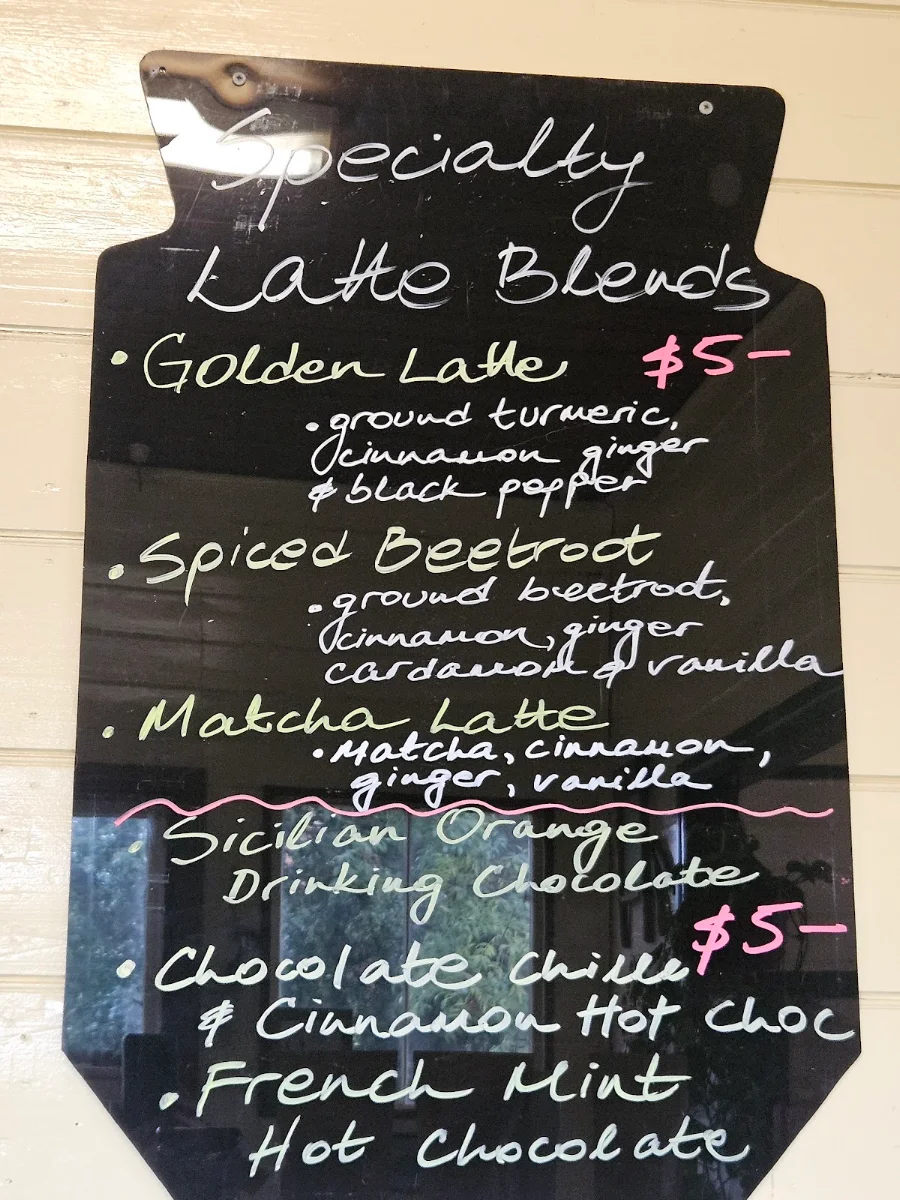 Specialty
Latte Blends
• Golden Latte $5-
• ground turmeric,
cinnamon ginger
& black pepper
• Spiced Beetroot
• ground beetroot,
cinnamon, ginger
cardamom & vanilla
• Matcha Latte
• Matcha, cinnamon,
ginger, vanilla
• Sicilian Orange
Drinking Chocolate
$5-
• Chocolate Chilli
& Cinnamon Hot Choc
• French Mint
Hot Chocolate